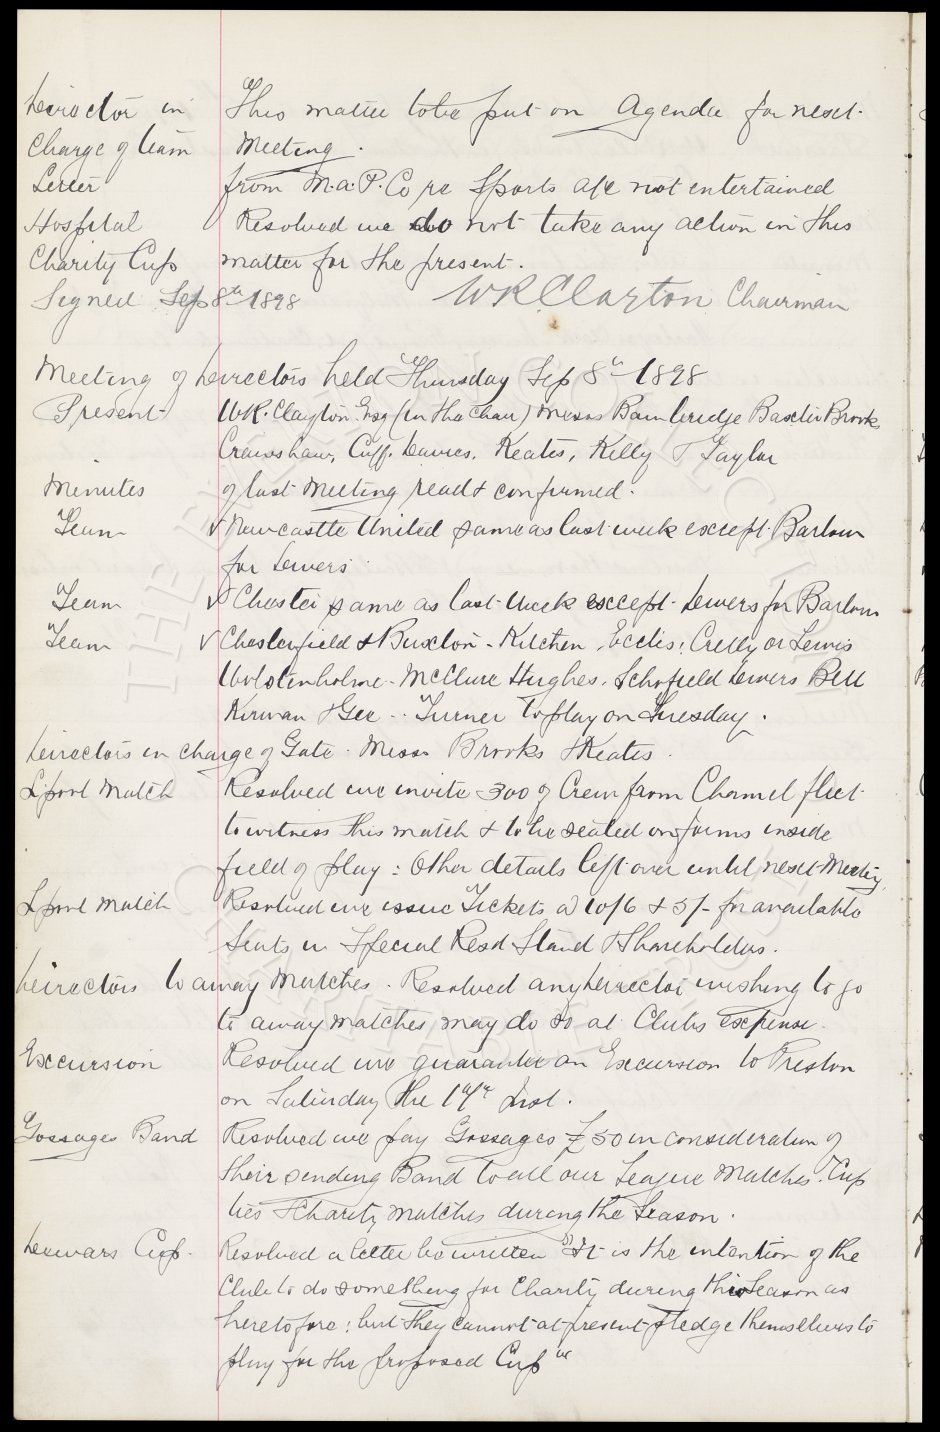 Director in This matter to be put on Agenda for next
Charge of team Meeting.
Letter from M.A.P. Co re Sports a/c not entertained
Hospital Resolved we do not take any action in this
Charity Cup matter for the present.
Signed Sep 8th 1898 WR Clayton Chairman
Meeting of Directors held Thursday Sep 8th 1898
Present WR. Clayton Esq (in the chair) Messrs Bainbridge Baxter Brooks
Crawshaw, Cuff. Davies. Keates, Kelly & Taylor
Minutes of last Meeting read & confirmed.
Team √ Newcastle United same as last week except Barlow
for Dewers
Team √ Chester same as last week except Dewers for Barlow
Team √ Chesterfield & Buxton - Kitchen, Eccles, Crelly or Lewis
Wolstenholme - McClure Hughes, Schofield Dewers Bell
Kirwan & Gee - Turner to play on Tuesday.
Directors in charge of Gate. Messrs Brooks & Keates.
L'pool Match Resolved we invite 300 of Crew from Channel fleet
to witness this match & to be seated on forms inside
field of play: Other details left over until next Meeting.
L'pool Match Resolved we issue Tickets @ 10/6 & 5/- for available
Seats in Special Resd Stand & Shareholders.
Directors to away Matches. Resolved any Director wishing to go
to away matches may do so at Clubs expense.
Excursion Resolved we guarantee an Excursion to Preston
on Saturday the 17th Inst.
Gossages Band Resolved we pay Gossages £50 in consideration of
their sending Band to all our League Matches. Cup
ties & Charity matches during the Season.
Dewars Cup. Resolved a letter be written "It is the intention of the
Club to do something for Charity during this Season as
heretofore: but they cannot at present pledge themselves to
play for the proposed Cup"